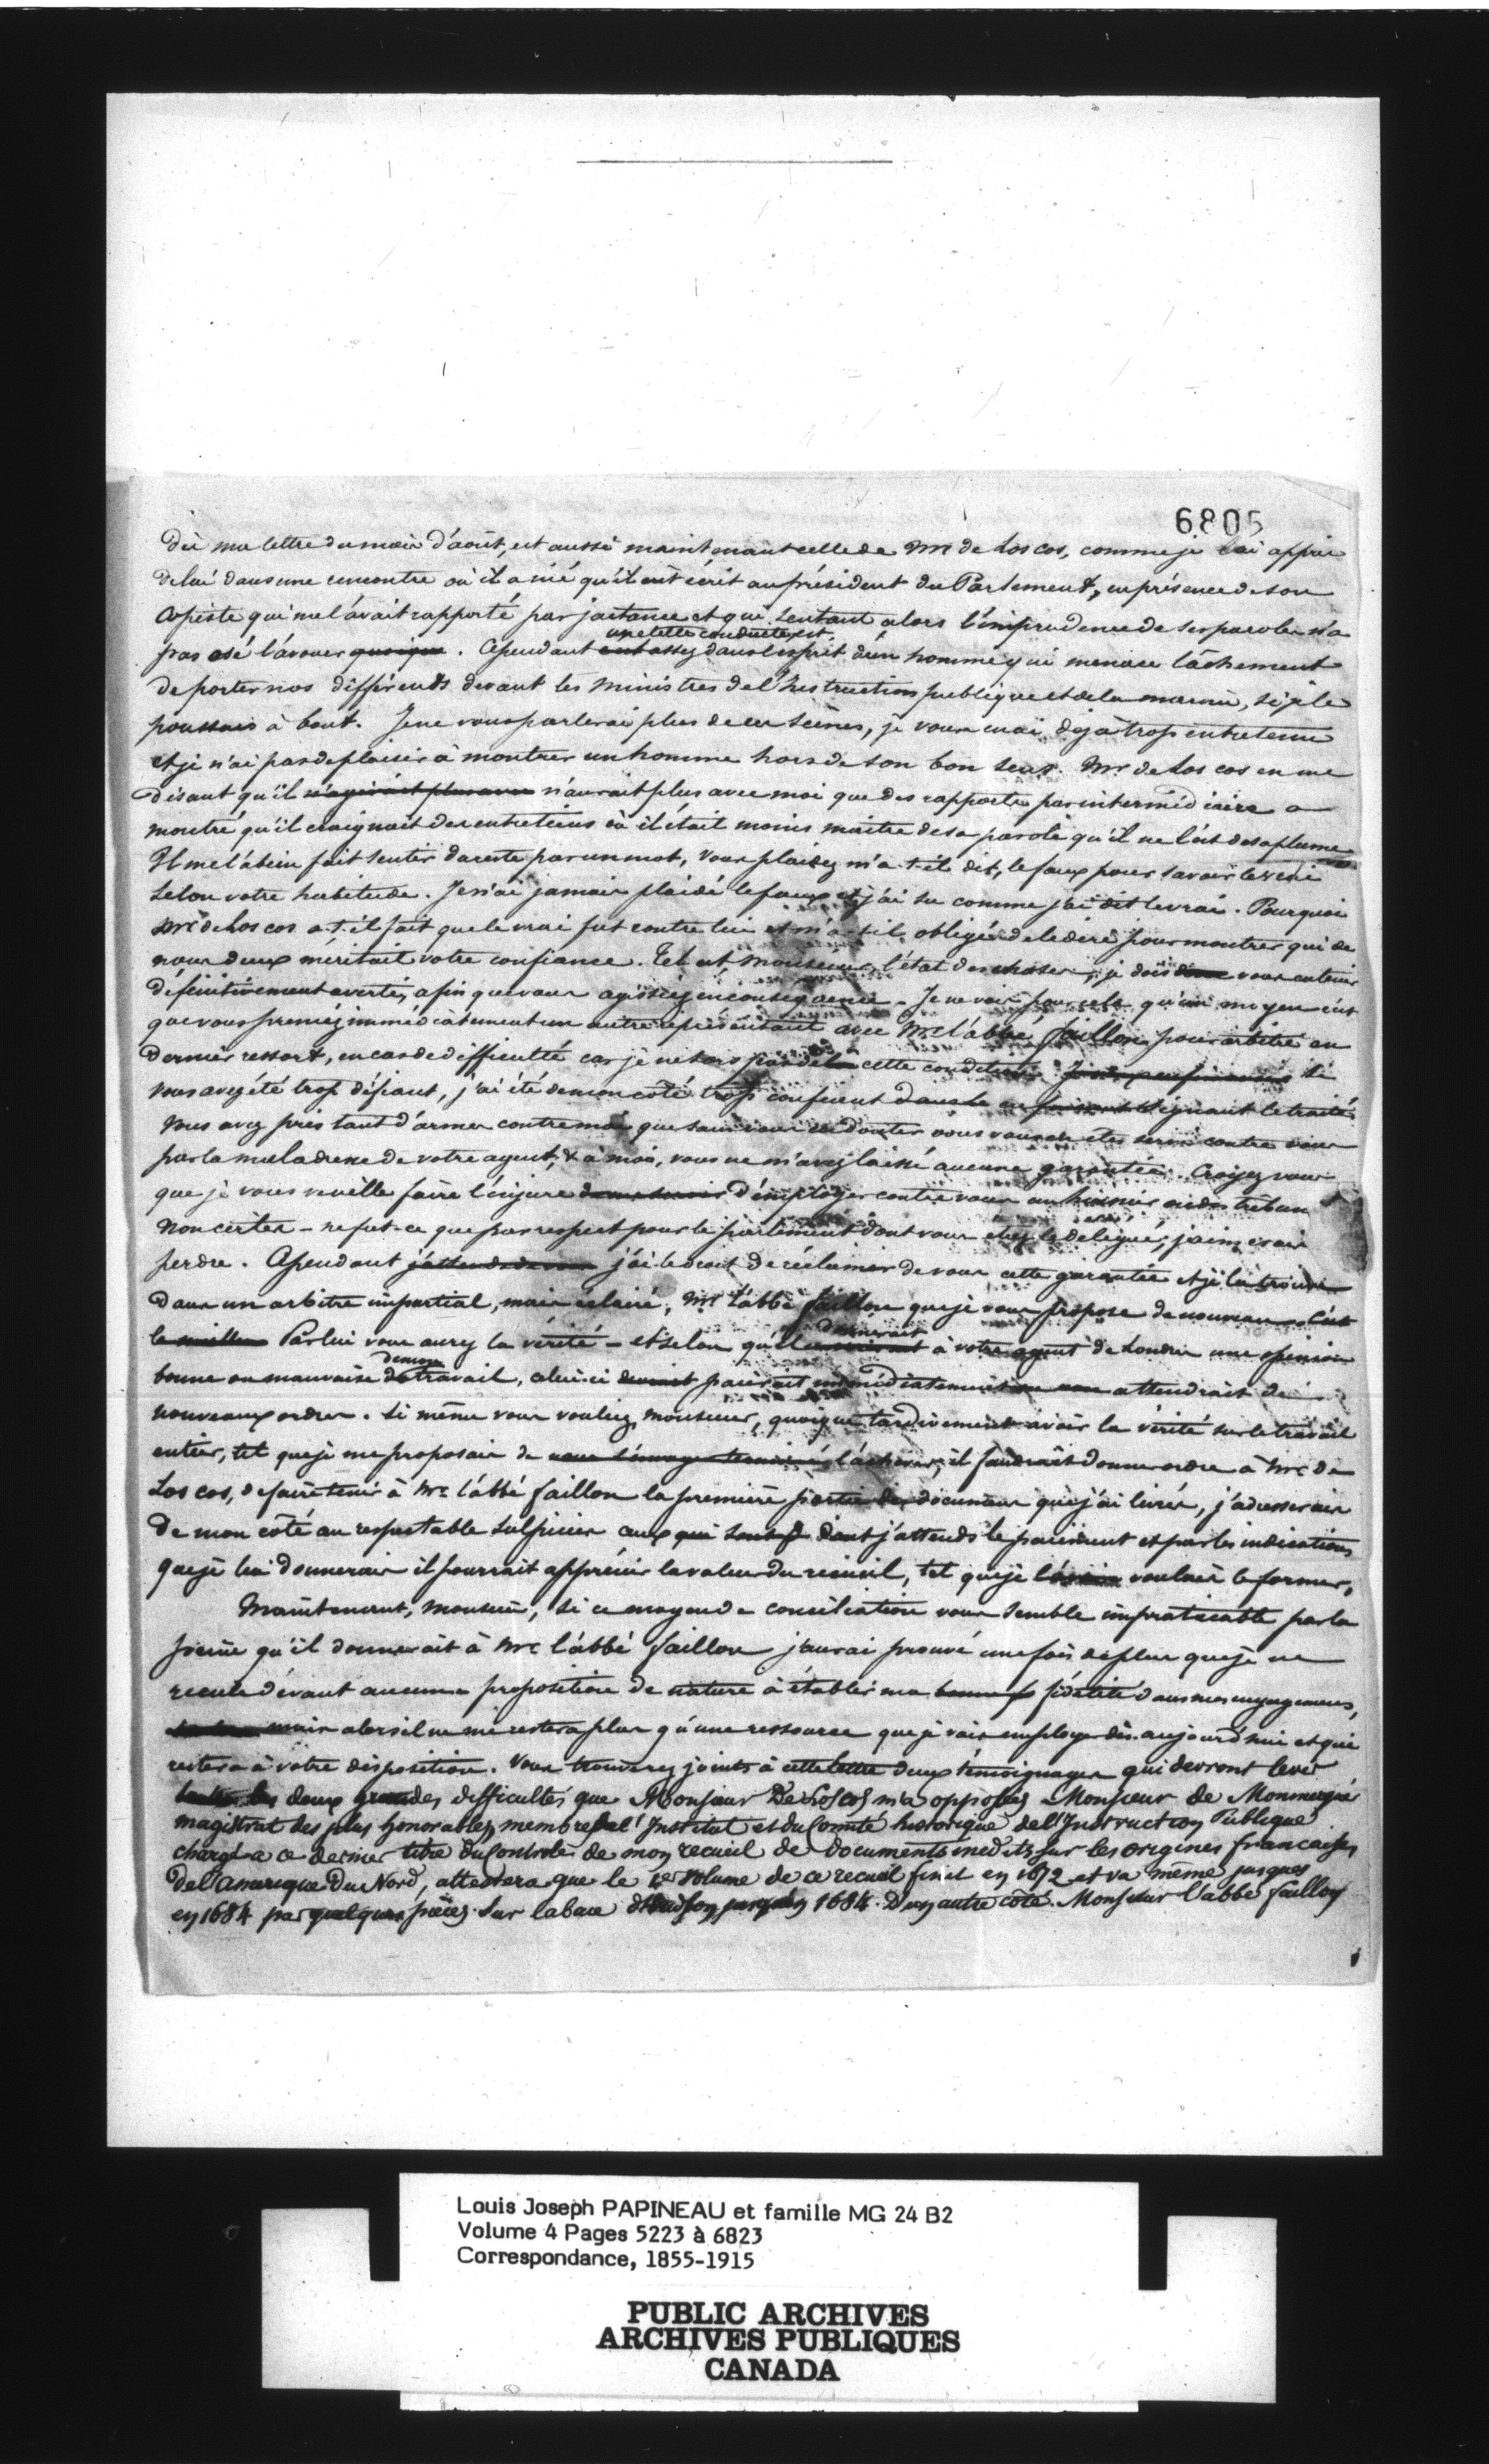 6805
Dû ma lettre du mois d'août, et aussi maintenant celle de Mr de Los cos, comme je l'ai appris
de lui dans une rencontre où il a nié qu'il eût écrit au président du Parlement, en présence de son
copiste qui me l'avait rapporté par jactance et qui sentant alors l'imprudence de ses paroles n'a
pas osé l'avouer quoique. Cependant une telle conduite est assez dans l'esprit d'un homme qui menace lâchement
de porter nos différents devant les ministres de l'Instruction publique et de la marine, si je le
poussais à bout. Je ne vous parlerai plus de ces scènes, je vous en ai déjà trop entretenu
et je n'ai pas de plaisir à montrer un homme hors de son bon sens. Mr de Los cos en me
disant qu'il n'agirait plus avec n'aurait plus avec moi que des rapports par intermédiaire a
montré qu'il craignait des entretiens où il était moins maître de sa parole qu'il ne l'est de sa plume
Il me l'a bien fait sentir du reste par un mot, vous plaidez m'a-t-il dit, le faux pour savoir le vrai
selon votre habitude. Je n'ai jamais plaidé le faux et j'ai su comme j'ai dit le vrai. Pourquoi
Mr de Los cos a-t-il fait que le vrai fut contre lui et m'a-t-il obligé de le dire pour montrer qui de
nous deux méritait votre confiance. Tel est Monsieur, l'état des choses, je dois vous en tenir
définitivement averti, afin que vous agissiez en conséquence. Je ne vois pour cela qu'un moyen c'est
que vous preniez immédiatement un autre représentant avec Mr l'abbé Faillon pour arbitre en
dernier ressort, en cas de difficulté car je ne sors pas de là cette condition. Si
vous avez été trop défiant, j'ai été de mon côté trop confient dans le en signant le traité.
Vous avez pris tant d'armes contre moi que sans vous en douter vous vous en êtes servi contre vous
par la maladresse de votre agent, & à moi, vous ne m'avez laissé aucune garantie. Croyez vous
que je vous veuille faire l'injure d'employer contre vous un huissier ou des tribun
Non certes – ne fut-ce que par respect pour le parlement dont vous étiez le délégué, j'aimerais
perdre. Cependant j'attends de vous j'ai le droit de réclamer de vous cette garantie et je la trouve
dans un arbitre impartial, mais éclairé, Mr l'abbé Faillon que je vous propose de nouveau. C'est
le meilleur Par lui vous aurez la vérité – et selon qu'il donnerait à votre agent de Londres une opinion
bonne ou mauvaise de mon travail, celui-ci paierait immédiatement ou attendrait de
nouveaux ordres. Si même vous vouliez, monsieur, quoique tardivement avoir la vérité sur le travail
entier, tel que je me proposais de l'achever, il faudrait donner ordre à Mr de
Los cos, de faire tenir à Mr l'abbé Faillon la première partie des documens que j'ai livrés, j'adresserais
de mon côté au respectable sulpicien ceux qui dont j'attends le paiement et par les indications
que je lui donnerais il pourrait apprécier la valeur du recueil, tel que je voulais le former.
Maintenant, monsieur, si ce moyen de conciliation vous semble impraticable par la
peine qu'il donnerait à Mr l'abbé Faillon j'aurai prouvé une fois de plus que je ne
recule devant aucune proposition de nature à établir ma bonne f fidélité dans mes engagemens,
mais alors il ne me restera plus qu'une ressource que je vais employer dès aujourd'hui et qui
restera à votre disposition. Vous trouverez joints à cette lettre deux témoignages qui devront lever
toutes les deux grandes difficultés que Monsieur De Los cos m'a opposées Monsieur de Monmerqué
magistrat des plus honorables, membre de l'Institut et du Comité historique de l'Instruction Publique
chargé a ce dernier titre du Controle de mon recueil de documents inedits sur les origines francaises
de l'Amerique Du Nord, attestera que le 1er volume de ce recueil finit en 1672 et va même jusques
en 1684 par quelques pièces sur la baie d'Hudson jusqu'en 1684. D'un autre côté. Monsieur l'abbé Faillon
Louis Joseph PAPINEAU et famille MG 24 B2
Volume 4 Pages 5223 à 6823
Correspondance, 1855-1915
PUBLIC ARCHIVES
ARCHIVES PUBLIQUES
CANADA